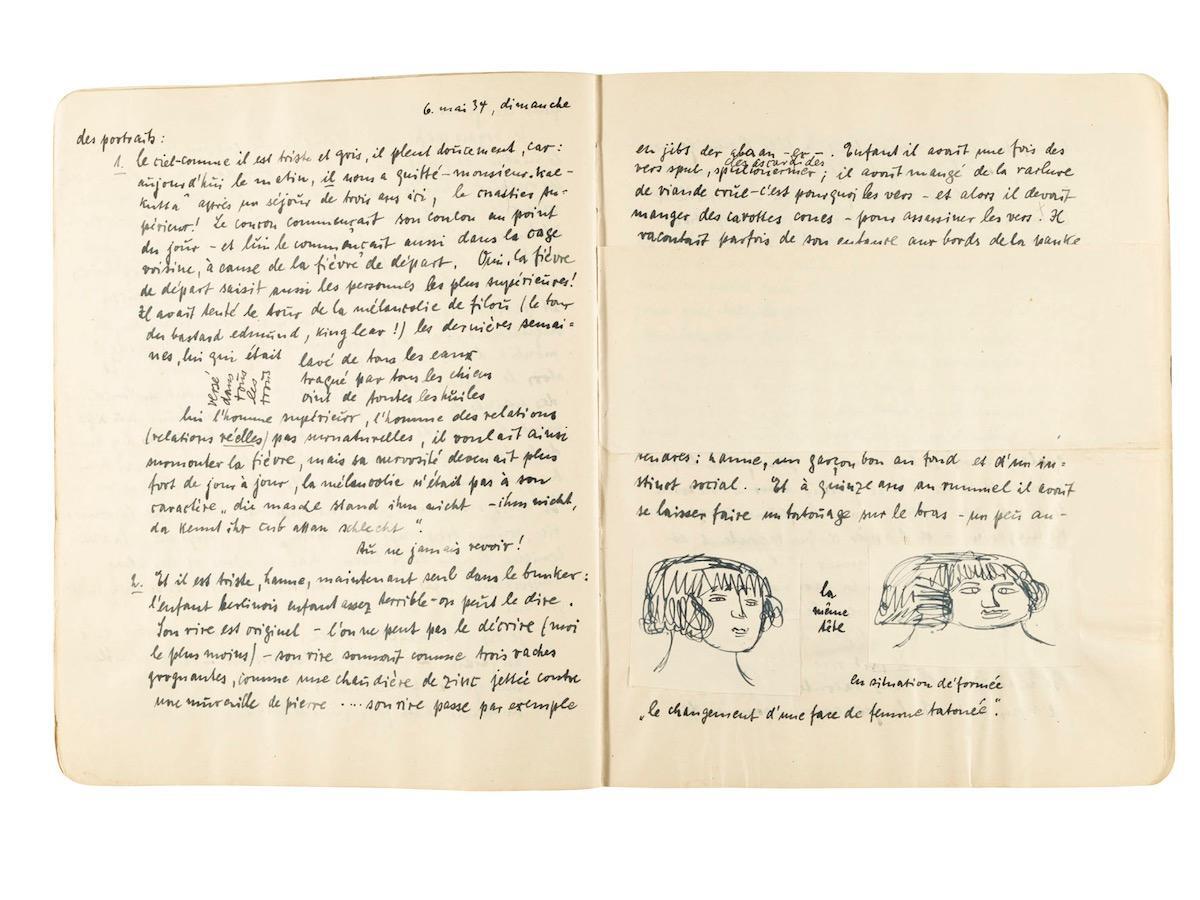 6. mai 34, dimanche
des portraits:
1. le ciel-comme il est triste et gris, il pleut doucement, car:
aujourd'hui le matin, il nous a quitté - monsieur. kal-
kutta" après un séjour de trois ans ici, le su-
périeur! Le commençait son au point
du jour - et lui le commençait aussi dans la cage
voisine, à cause de la fièvre de départ. Oui, la fièvre
de départ saisit aussi les personnes les plus supérieures!
Il avait tenté le tour de la mélancolie de filou (le tour
du bastard edmund, king lear!) les dernières semai-
nes, lui qui était
versé
dans
tous
les
trous
lavé de tous les eaux
traqué par tous les chiens
oint de toutes les huiles
lui l'homme supérieur, l'homme des relations
(relations réelles) pas surnaturelles, il voulait ainsi
surmonter la fièvre, mais sa nervosité devenait plus
fort de jour à jour, la mélancolie n'était pas à son
caractère „die masche stand ihm nicht - ihm nicht,
da kennt ihr schlecht".
tu ne jamais revoir!
2. Et il est triste, hanne, maintenant seul dans le bunker:
l'enfant berlinois enfant assez terrible - on peut le dire.
Son rire est originel - l'on ne peut pas le décrire (moi
le plus moins) - son rire sonnait comme trois vaches
grognantes, comme une chaudière de zinc jettée contre
une muraille de pierre .... son rire passe par exemple
en jibs der aber an - . Enfant il avait une fois des
les ascarides
vers spul, spulwürmer; il avait mangé de la raclure
de viande crue - c'est pourquoi les vers - et alors il devait
manger des carottes crues - pour assassiner les vers! Il
racontait parfois de son enfance aux bords de la panke
hanne, un garçon bon au fond et d'un in-
stinct social.. Et à quinze ans au rummel il avait
se laisser faire un tatouage sur le bras - un peu au-
la
même
tête
en situation déformée
„le changement d'une face de femme tatouée".